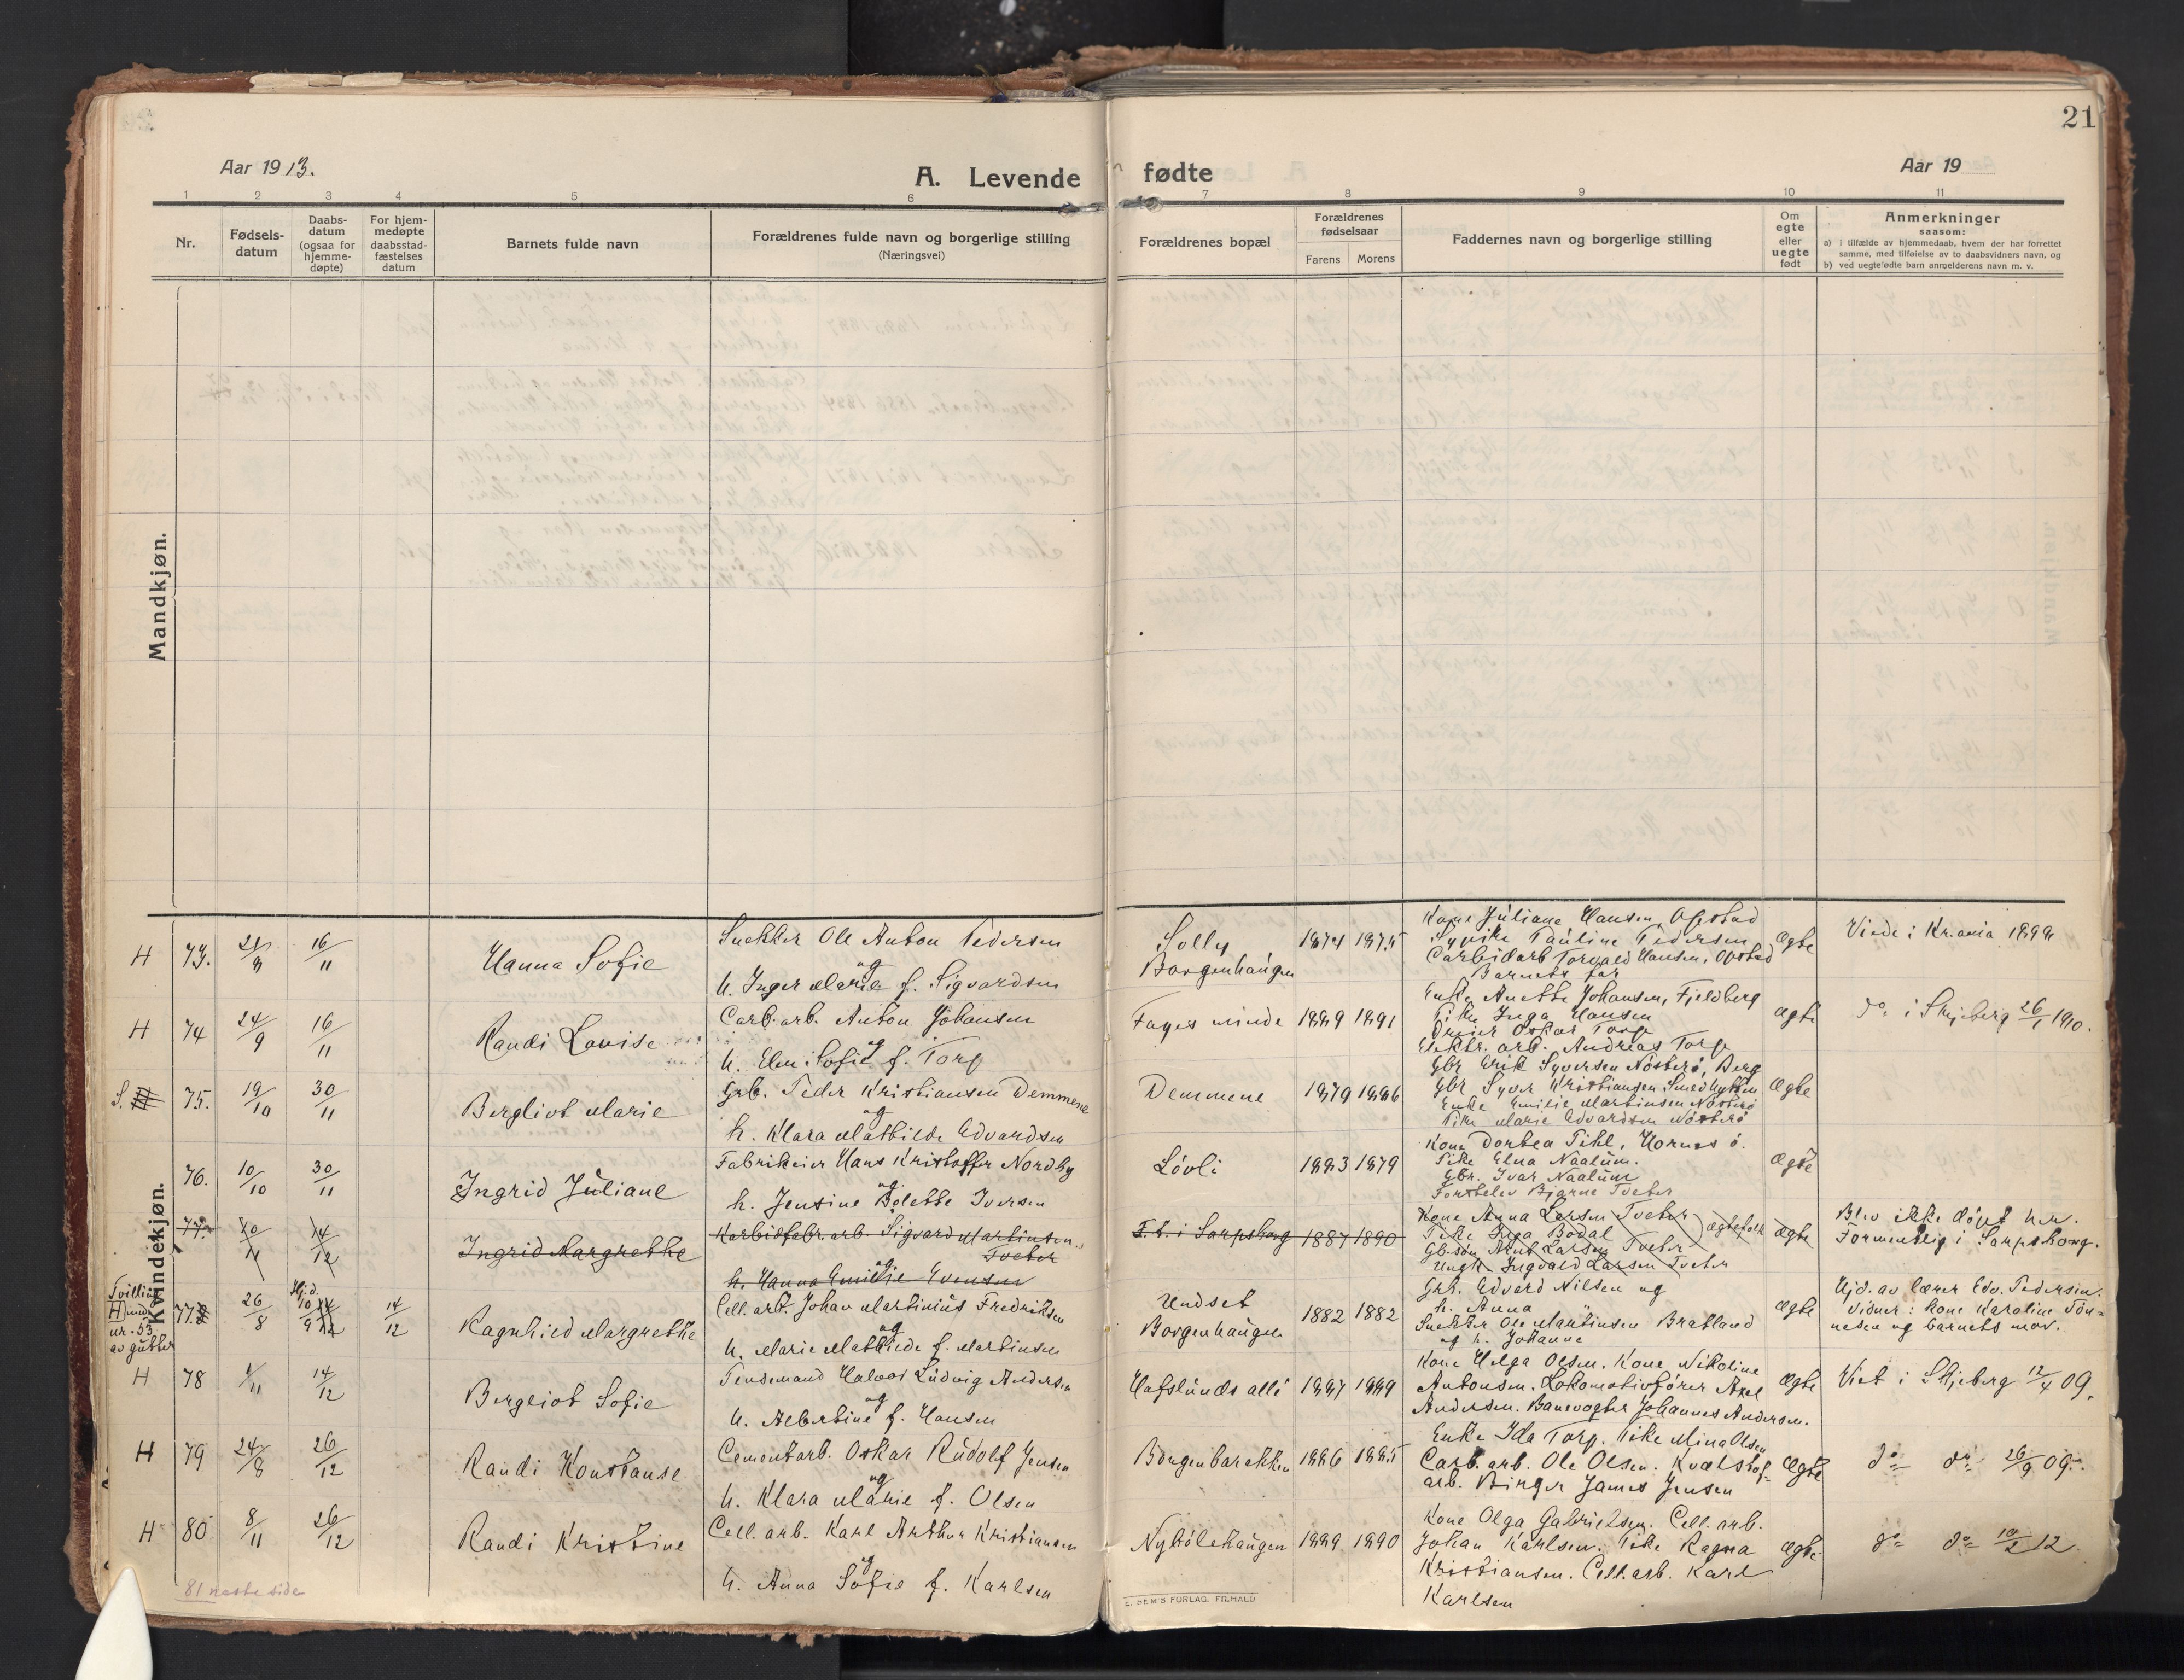 21
Aar 1913.
A. Levende fødte
Aar 19
1 2 3 4 5 6 7 8 9 10 11
Nr.
Fødsels-
datum
Daabs-
datum
(ogsaa for
hjemme-
døpte)
For hjem-
medøpte
daabsstad-
fæstelses
datum
Barnets fulde navn
Forældrenes fulde navn og borgerlige stilling
(Næringsvei)
Forældrenes bopæl
Forældrenes
fødselsaar
Farens Morens
Faddernes navn og borgerlige stilling
Om
egte
eller
uegte
født
Anmerkninger
saasom:
a) i tilfælde av hjemmedaab, hvem der har forrettet
samme, med tilføielse av to daabsvidners navn, og
b) ved uegtefødte barn anmelderens navn m. v.
Mandkjøn.
Kvindekjøn.
H 73. 16/11 Hanna Sofie
Snekker Ole Anton Pedersen
og
h. Inger Marie f. Sigvardsen
Solly
Borgenhaugen
1874 1875
Kone Juliane Hansen, Opstad
Syerske Pauline Pedersen
Carbidarb Torvald Hansen, Opstad
Barnets far
Ægte
Viede i Kr.ania 1899
H 74 24/9 16/11 Randi Lovise
Carb.arb. Anton Johansen
og
h. Elen Sofie f. Torp
Fagerminde
1889 1891
Enke Anette Johansen, Fjeldberg
Pike Inga Hansen
Dreier Oskar Torp
Elektr. arb. Andreas Torp
Ægte
do i Skjeberg 26/1 1910.
S. 75. 19/10 30/11 Bergliot Marie
Grb. Peder Kristiansen Demmene
og
h. Klara Mathilde Edvardsen
Demmene
1879 1886
Gbr Erik Syversen Nøsterø, Berg
Gbr Syver Kristiansen Smedhytten
Enke Emilie Martinsen Nøsterø
Pike Marie Edvardsen Nøsterø
Ægte
76. 10/10 30/11 Ingrid Juliane
Fabrikeier Hans Kristoffer Nordby
og
h. Jensine Bolette Iversen
Løvli
1883 1879
Kone Dorthea Pihl, Hornes ø.
Pike Elna Naalum.
Gbr. Ivar Naalum
Forstelev Bjarne Tveter
Ægte
77. 14/12 Ingrid Margrethe
Karbidfabr.arb. Sigvard Martinsen
Tveter
og
h. Hanna Emilie Evensen
F. t. i Sarpsborg
1887 1890
Kone Anna Larsen Tveter
Pike Inga Bødal
Gb.søn Knut Larsen Tveter
Ungk. Ingvald Larsen Tveter
Ægtefolk
Ægte
Blev ikke døpt her.
Formentlig i Sarpsborg.
Tvilling
H med
nr. 53
av gutter
77. 26/8
Hjd.
10/9
14/12
Ragnhild Margrethe
Cell. arb. Johan Martinius Fredriksen
og
h. Marie Mathilde f. Martinsen
Undset
Borgenhaugen
1882 1882
Grb. Edvard Nilsen og
h. Anna
Snekker Ole Martinsen Bratland
og h. Johanne
Ægte
Hjd. av lærer Edv. Pedersen.
Vidner: Kone Karoline Tøn-
nesen og barnets mor.
H 78 1/11 14/12 Bergliot Sofie
Pensemand Halvor Ludvig Andersen
og
h. Albertine f. Hansen
Hafslunds allé
1887 1889
Kone Helga Olsen. Kone Nikoline
Antonsen. Lokomotivfører Axel
Andersen. Banevogter Johannes Andersen.
Ægte
Viet i Skjeberg 12/4 09.
H 79 24/8 26/12 Randi Konstanse
Cementarb. Oskar Rudolf Jensen
og
h. Klara Marie f. Olsen
Borgenbarakken
1886 1885
Enke Ida Torp. Pike Mina Olsen
Carb.arb. Ole Olsen. Kvælstof-
arb. Birger James Jensen
Ægte
do do 26/9 09.
H 80 8/11 26/12 Randi Kristine
Cell. arb. Karl Arthur Kristiansen
og
h. Anna Sofie f. Karlsen
Nybølehaugen
1889 1890
Kone Olga Gabrielsen. Cell. arb.
Johan Karlsen. Pike Ragna
Kristiansen. Cell. arb. Karl
Karlsen
Ægte
do do 10/2 12.
81 næste side
E. SEM'S FORLAG. F.HALD